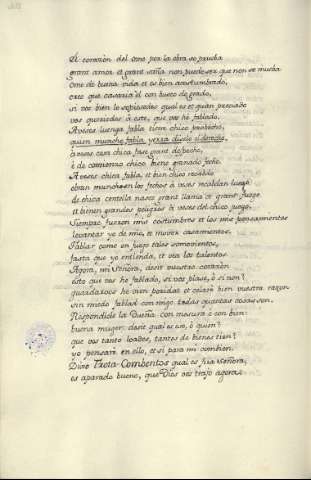 El corazón del ome por la obra se prueba
grant amor et grant saña non puede ser que non se mueba
Ome de buena vida et es bien acostumbrado,
creo que casaría él con busco de grado,
si vos bien lo sopiésedes qual es et quan preciado
vos querríedes á este, que vos he fablado.
A veses luenga fabla tiene chico probecho,
quien muncho fabla yerra díselo el derecho,
á veses cosa chica fase grant despecho,
é de comienzo chico viene granado fecho.
A veses chica fabla, et bien chico recabdo
obran mucho en los fechos á veses recabdan luego
de chica centella nasce grant llama et grant fuego
et bienen grandes peleas á veses del chico juego.
Siempre fueron mis costumbres et los mis pensamientos
levantar yo de mio, et mover casamientos.
Fablar como en juego tales somovientos,
fasta que yo entienda, et vea los talentos
Agora, mi Señora, desit vuestro corazón
esto que vos he fablado, si vos plase, ó si non?
guardarvos he bien poridat et celaré bien vuestra razon
sin miedo fablad con migo todas quantas cosas son.
Respondióle la Dueña con mesura é con bien
buena muger: desit qual es ese, ó quien?
que vos tanto loades, tantos de bienes tien?
yo pensaré en ello, et si para mí combien.
Dixo Trota-Combentos qual es fija Señora,
es aparado bueno, que Dios vos trajo agora: